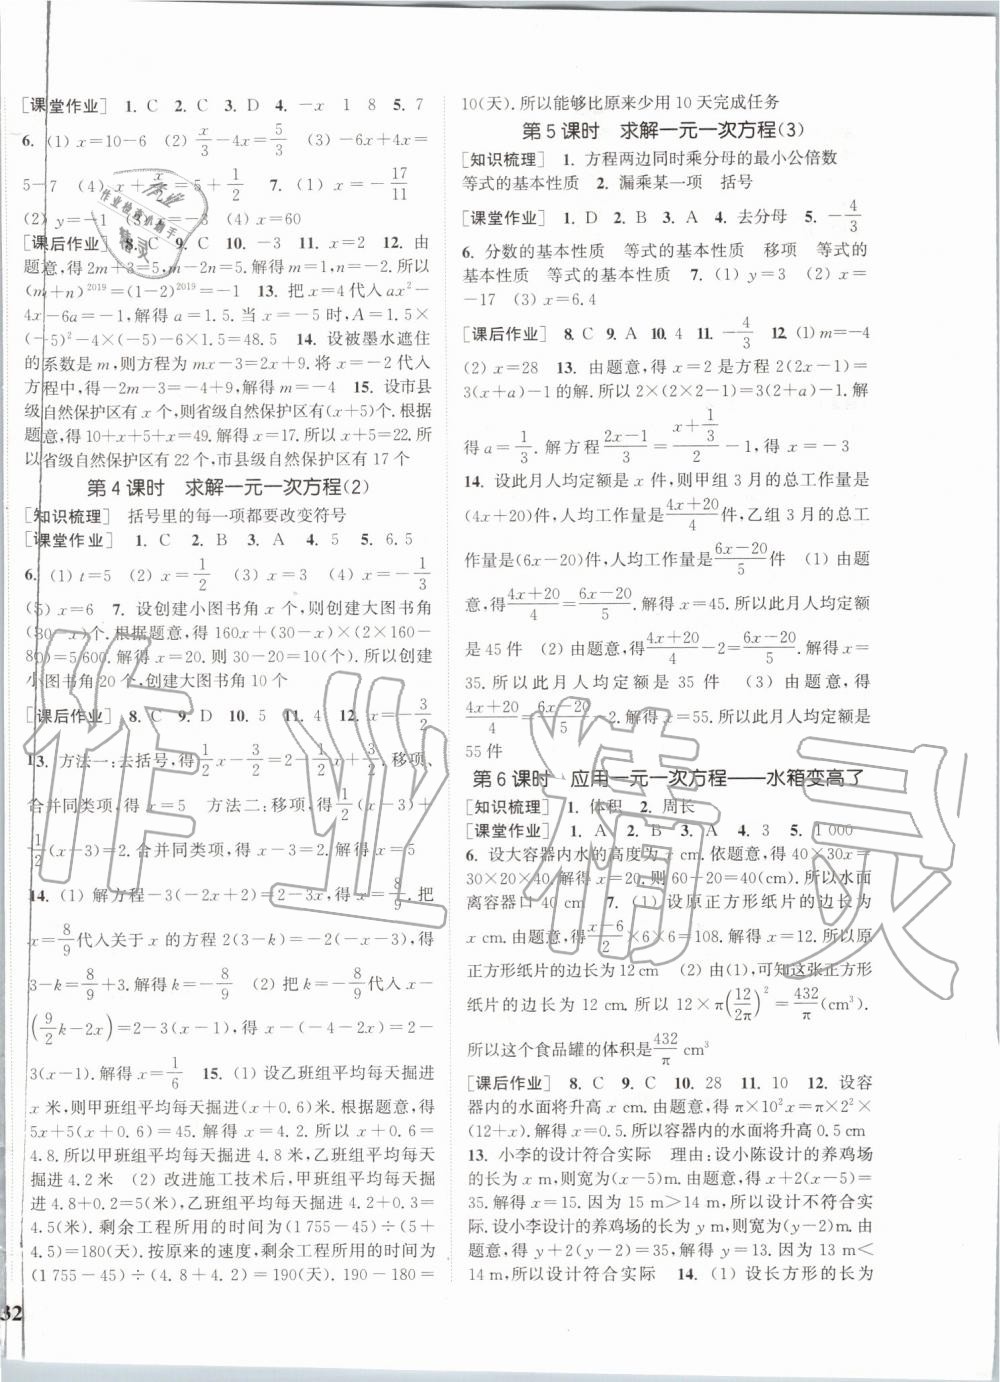 [课堂作业] 1. C 2. C 3. D 4. －x 1 8 5. 7
6. (1) x＝10－6 (2) x/3－4x＝5/3 (3) －6x－2x＝
5－7 (4) x＋x/3＝5＋1/2 7. (1) x＝－17/11
(2) y＝－1 (3) x＝－5 (4) x＝60
[课后作业] 8. C 9. C 10. －3 11. x＝2 12. 由
题意,得 2m＋3＝5,m－2n＝5. 解得 m＝1,n＝－2. 所以
(m＋n)²⁰¹⁹＝(1－2)²⁰¹⁹＝－1 13. 把 x＝4 代入 ax²－
4x－6a＝－1,解得 a＝1.5. 当 x＝－5 时,A＝1.5×
(－5)²－4×(－5)－6×1.5＝48.5 14. 设被墨水遮住
的系数是 m,则方程为 mx－3＝2x＋9. 将 x＝－2 代入
方程中,得－2m－3＝－4＋9,解得 m＝－4 15. 设市县
级自然保护区有 x 个,则省级自然保护区有(x＋5)个. 根据
题意,得 10＋x＋5＋x＝49. 解得 x＝17. 所以 x＋5＝22. 所
以省级自然保护区有 22 个,市县级自然保护区有 17 个
第 4 课时 求解一元一次方程(2)
[知识梳理] 括号里的每一项都要改变符号
[课堂作业] 1. C 2. B 3. A 4. 5 5. 6.5
6. (1) t＝5 (2) x＝1/2 (3) x＝3 (4) x＝－1/3
(5) x＝6 7. 设创建小图书角 x 个,则创建大图书角
(30－x)个. 根据题意,得 160x＋(30－x)×(2×160－
80)＝5 600. 解得 x＝20. 则 30－20＝10(个). 所以创建
小图书角 20 个,创建大图书角 10 个
[课后作业] 8. C 9. D 10. 5 11. 4 12. x＝－3/2
13. 方法一:去括号,得1/2x－3/2＝2－1/2x＋3/2,移项、
合并同类项,得 x＝5 方法二:移项,得1/2(x－3)＋
1/2(x－3)＝2. 合并同类项,得 x－3＝2. 解得 x＝5
14. (1) 解方程－3(－2x＋2)＝2－3x,得 x＝8/9. 把
x＝8/9代入关于 x 的方程 2(3－k)＝－2(－x－3),得
3－k＝8/9＋3. 解得 k＝－8/9 (2) 把 k＝－8/9代入 x－
(9/2k－2x)＝2－3(x－1),得 x－(－4－2x)＝2－
3(x－1). 解得 x＝1/6 15. (1) 设乙班组平均每天掘进
x 米,则甲班组平均每天掘进(x＋0.6)米. 根据题意,得
5x＋5(x＋0.6)＝45. 解得 x＝4.2. 所以 x＋0.6＝
4.8. 所以甲班组平均每天掘进 4.8 米,乙班组平均每天掘
进 4.2 米 (2) 改进施工技术后,甲班组平均每天掘进
4.8＋0.2＝5(米),乙班组平均每天掘进 4.2＋0.3＝
4.5(米). 剩余工程所用的时间为(1 755－45)÷(5＋
4.5)＝180(天). 按原来的速度,剩余工程所用的时间为
(1 755－45)÷(4.8＋4.2)＝190(天). 190－180＝
10(天). 所以能够比原来少用 10 天完成任务
第 5 课时 求解一元一次方程(3)
[知识梳理] 1. 方程两边同时乘分母的最小公倍数
等式的基本性质 2. 漏乘某一项 括号
[课堂作业] 1. D 2. B 3. A 4. 去分母 5. －4/3
6. 分数的基本性质 等式的基本性质 移项 等式的
基本性质 等式的基本性质 7. (1) y＝3 (2) x＝
－17 (3) x＝6.4
[课后作业] 8. C 9. A 10. 4 11. －4/3 12. (1) m＝－4
(2) x＝28 13. 由题意,得 x＝2 是方程 2(2x－1)＝
3(x＋a)－1 的解. 所以 2×(2×2－1)＝3(2＋a)－1. 解
得 a＝1/3. 解方程(2x－1)/3＝(x＋1/3)/2－1,得 x＝－3
14. 设此月人均定额是 x 件,则甲组 3 月的总工作量是
(4x＋20)件,人均工作量是(4x＋20)/4件,乙组 3 月的总工
作量是(6x－20)件,人均工作量是(6x－20)/5件 (1) 由题
意,得(4x＋20)/4＝(6x－20)/5. 解得 x＝45. 所以此月人均定额
是 45 件 (2) 由题意,得(4x＋20)/4－2＝(6x－20)/5. 解得 x＝
35. 所以此月人均定额是 35 件 (3) 由题意,得
(4x＋20)/4＝(6x－20)/5－2. 解得 x＝55. 所以此月人均定额是
55 件
第 6 课时 应用一元一次方程——水箱变高了
[知识梳理] 1. 体积 2. 周长
[课堂作业] 1. A 2. B 3. A 4. 3 5. 1 000
6. 设大容器内水的高度为 x cm. 依题意,得 40×30x＝
30×20×40. 解得 x＝20. 则 60－20＝40(cm). 所以水面
离容器口 40 cm 7. (1) 设原正方形纸片的边长为
x cm. 由题意,得(x－6)/6×6×6＝108. 解得 x＝12. 所以原
正方形纸片的边长为 12 cm (2) 由(1),可知这张正方形
纸片的边长为 12 cm. 所以 12×π(12/2π)²＝432/π(cm³).
所以这个食品罐的体积是432/π cm³
[课后作业] 8. C 9. C 10. 28 11. 10 12. 设容
器内的水面将升高 x cm. 由题意,得 π×10²x＝π×2²×
(12＋x). 解得 x＝0.5. 所以容器内的水面将升高 0.5 cm
13. 小李的设计符合实际 理由:设小陈设计的养鸡场
的长为 x m,则宽为(x－5)m. 由题意,得 x＋2(x－5)＝
35. 解得 x＝15. 因为 15 m＞14 m,所以设计不符合实
际. 设小李设计的养鸡场的长为 y m,则宽为(y－2)m. 由
题意,得 y＋2(y－2)＝35,解得 y＝13. 因为 13 m＜
14 m,所以设计符合实际 14. (1) 设长方形的长为
32
作业精灵
作业检查小助手
精灵